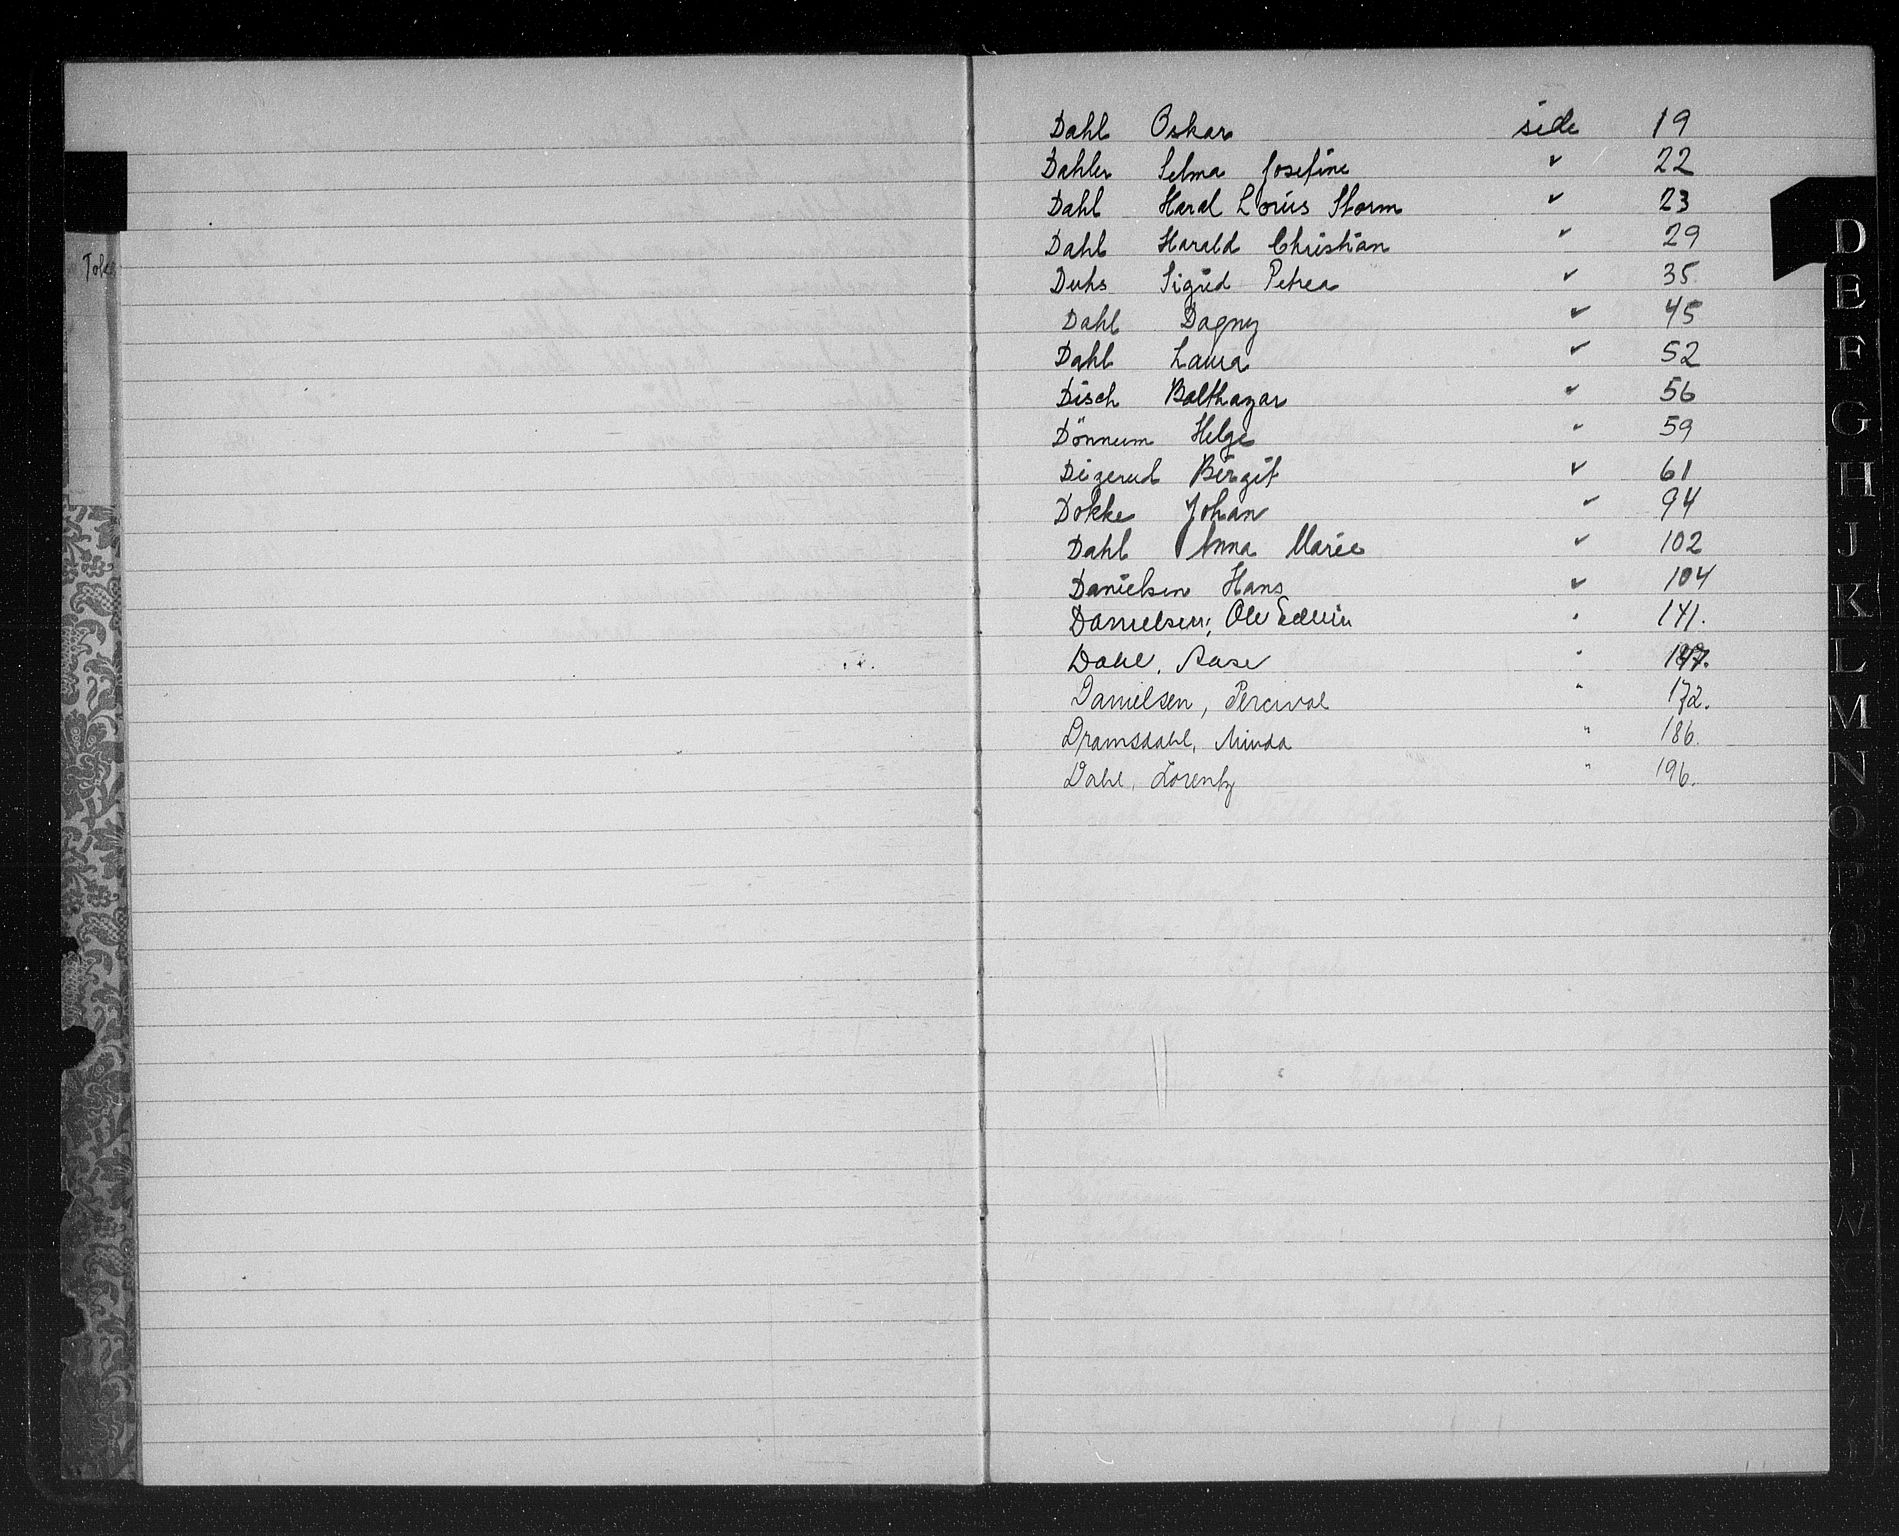 Dahl Oskar side 19
Dahler Selma Josefine " 22
Dahl Haral Louis Storm " 23
Dahl Harald Christian " 29
Duhs Sigrid Petrea " 35.
Dahl Dagny " 45
Dahl Laura " 52
Disch Balthazar " 56
Dönnum Helge " 59
Digerud Birgit " 61
Dokke Johan " 94
Dahl Anna Marie " 102
Danielsen Hans " 104
Danielsen, Ole Edwin " 141.
Dahl, Aase "
Danielsen, Percival " 172.
Dramsdahl, Minda " 186.
Dahl, Lorentz " 196.
D
E
F
G
H
J
K
L
M
N
O
P
Q
R
S
T